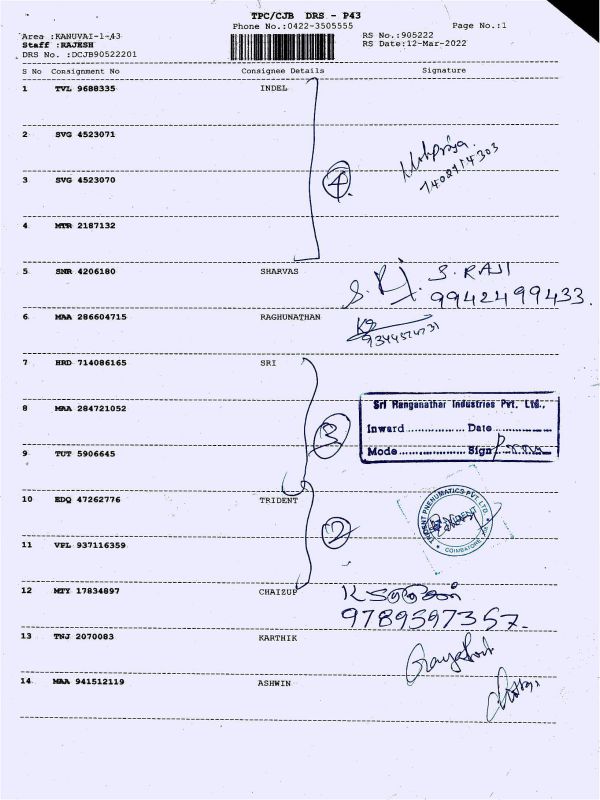 TPC/CJB DRS - P43
Phone No.:0422-3505555 Page No.:1
Area :KANUVAI-1-43 RS No.:905222
Staff :RAJESH RS Date:12-Mar-2022
DRS No. :DCJB90522201
S No Consignment No Consignee Details Signature
1 TVL 9688335 INDEL
2 SVG 4523071
3 SVG 4523070
4
4 MTR 2187132
5 SNR 4206180 SHARVAS S. RAJI
9942499433.
6 MAA 286604715 RAGHUNATHAN
7 HRD 714086165 SRI
Sri Ranganathar Industries Pvt. Ltd.,
8 MAA 284721052
3
Inward Date
Mode Sign
9 TUT 5906645
10 EDQ 47262776 TRIDENT
TRIDENT PNEUMATICS PVT. LTD.
COIMBATORE
2
11 VPL 937116359
12 MTY 17834897 CHAIZUP
9789597357.
13 TNJ 2070083 KARTHIK
14 MAA 941512119 ASHWIN